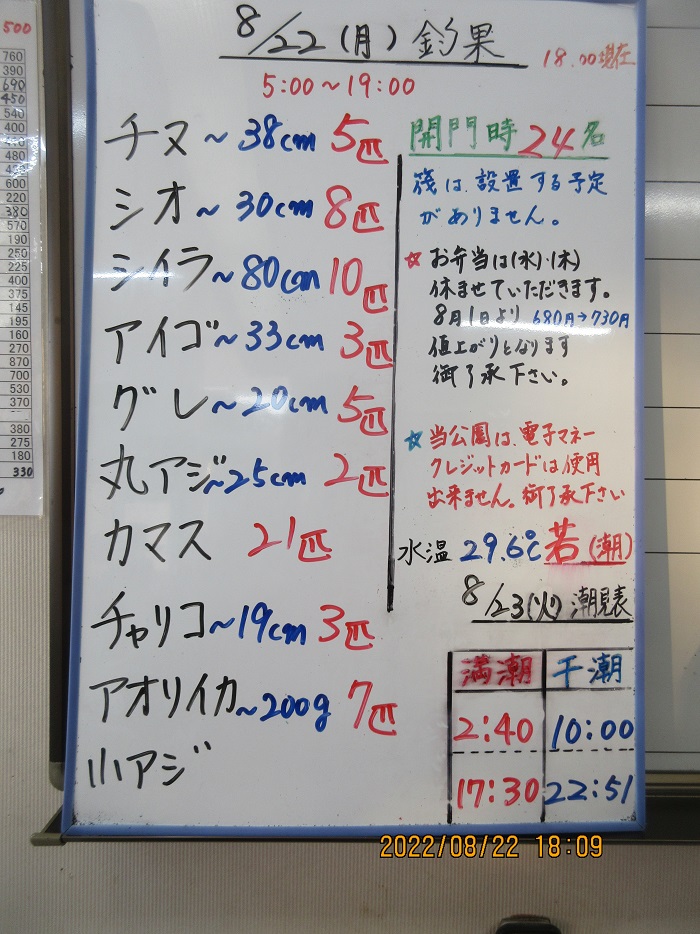 8/22(月)釣果
18.00現在
5:00~19:00
チヌ~38cm 5匹
シオ~30cm 8匹
シイラ~80cm 10匹
アイゴ~33cm 3匹
グレ~20cm 5匹
丸アジ~25cm 2匹
カマス 21匹
チャリコ~19cm 3匹
アオリイカ~200g 7匹
小アジ
開門時24名
筏は、設置する予定
がありません。
☆お弁当は(水)・(木)
休ませていただきます。
8月1日より 680円→730円
値上がりとなります
御了承下さい。
☆当公園は、電子マネー
クレジットカードは使用
出来ません。御了承下さい
水温 29.6℃ 若(潮)
8/23(火)潮見表
満潮 干潮
2:40 10:00
17:30 22:51
500
760
390
690
450
540
400
440
480
600
220
380
570
190
250
225
400
375
145
195
160
270
870
700
530
370
380
275
180
330
2022/08/22 18:09